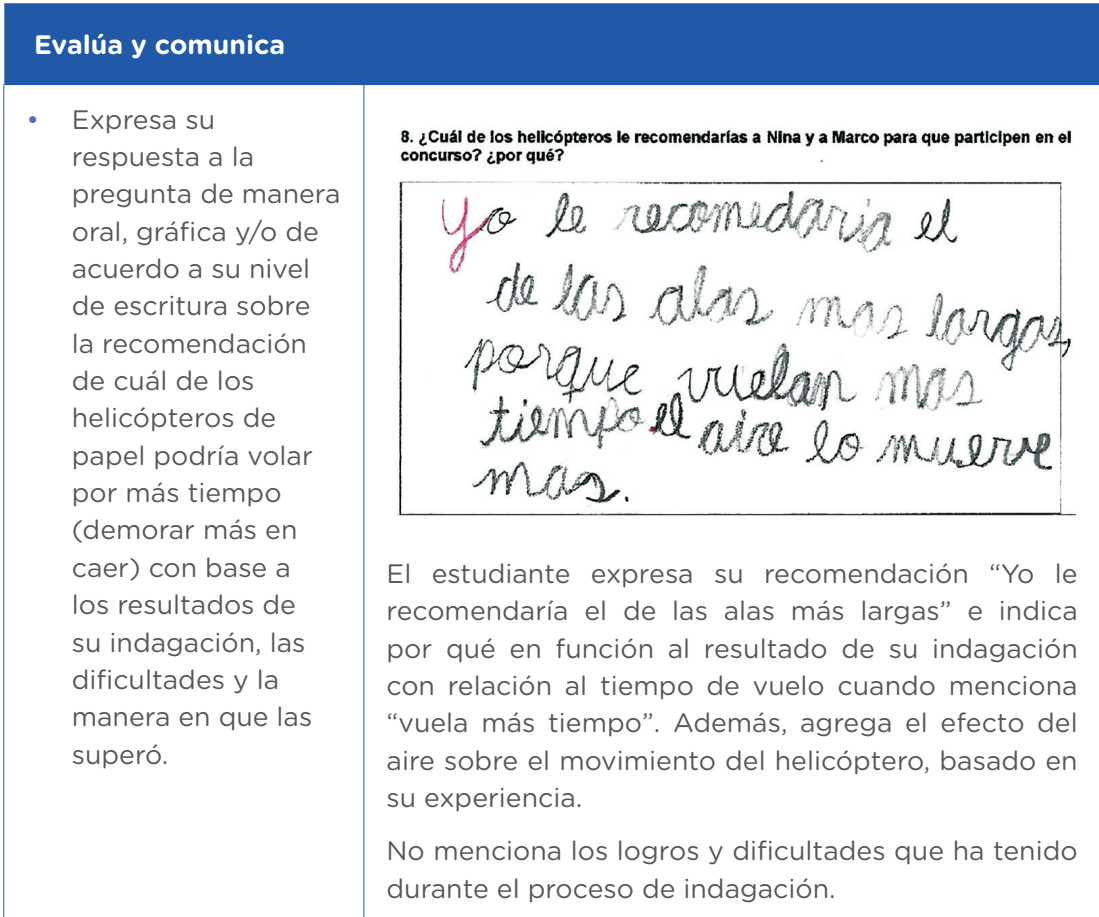 Evalúa y comunica
• Expresa su
respuesta a la
pregunta de manera
oral, gráfica y/o de
acuerdo a su nivel
de escritura sobre
la recomendación
de cuál de los
helicópteros de
papel podría volar
por más tiempo
(demorar más en
caer) con base a
los resultados de
su indagación, las
dificultades y la
manera en que las
superó.
8. ¿Cuál de los helicópteros le recomendarías a Nina y a Marco para que participen en el
concurso? ¿por qué?
Yo le recomedaria el
de las alas mas largas,
porque vuelan mas
tiempo el aire lo muerve
mas.
El estudiante expresa su recomendación “Yo le
recomendaría el de las alas más largas” e indica
por qué en función al resultado de su indagación
con relación al tiempo de vuelo cuando menciona
“vuela más tiempo”. Además, agrega el efecto del
aire sobre el movimiento del helicóptero, basado en
su experiencia.
No menciona los logros y dificultades que ha tenido
durante el proceso de indagación.